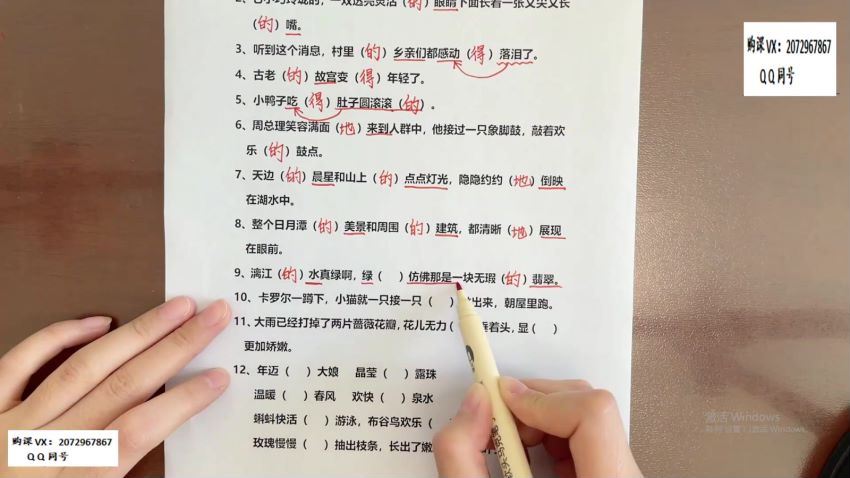 2、七小巧玲珑的，一双透亮灵活（的）眼睛下面长着一张又尖又长
（的）嘴。
3、听到这个消息，村里（的）乡亲们都感动（得）落泪了。
4、古老（的）故宫变（得）年轻了。
5、小鸭子吃（得）肚子圆滚滚（的）。
6、周总理笑容满面（地）来到人群中，他接过一只象脚鼓，敲着欢
乐（的）鼓点。
7、天边（的）晨星和山上（的）点点灯光，隐隐约约（地）倒映
在湖水中。
8、整个日月潭（的）美景和周围（的）建筑，都清晰（地）展现
在眼前。
9、漓江（的）水真绿啊，绿（ ）仿佛那是一块无瑕（的）翡翠。
10、卡罗尔一蹲下，小猫就一只接一只（ ）出来，朝屋里跑。
11、大雨已经打掉了两片蔷薇花瓣，花儿无力（ 垂着头，显（ ）
更加娇嫩。
12、年迈（ ）大娘 晶莹（ ）露珠
温暖（ ）春风 欢快（ ）泉水
蝌蚪快活（ ）游泳，布谷鸟欢乐（
玫瑰慢慢（ ）抽出枝条，长出了嫩
购课VX：2072967867
QQ同号
购课VX：2072967867
QQ同号
激活 Windows